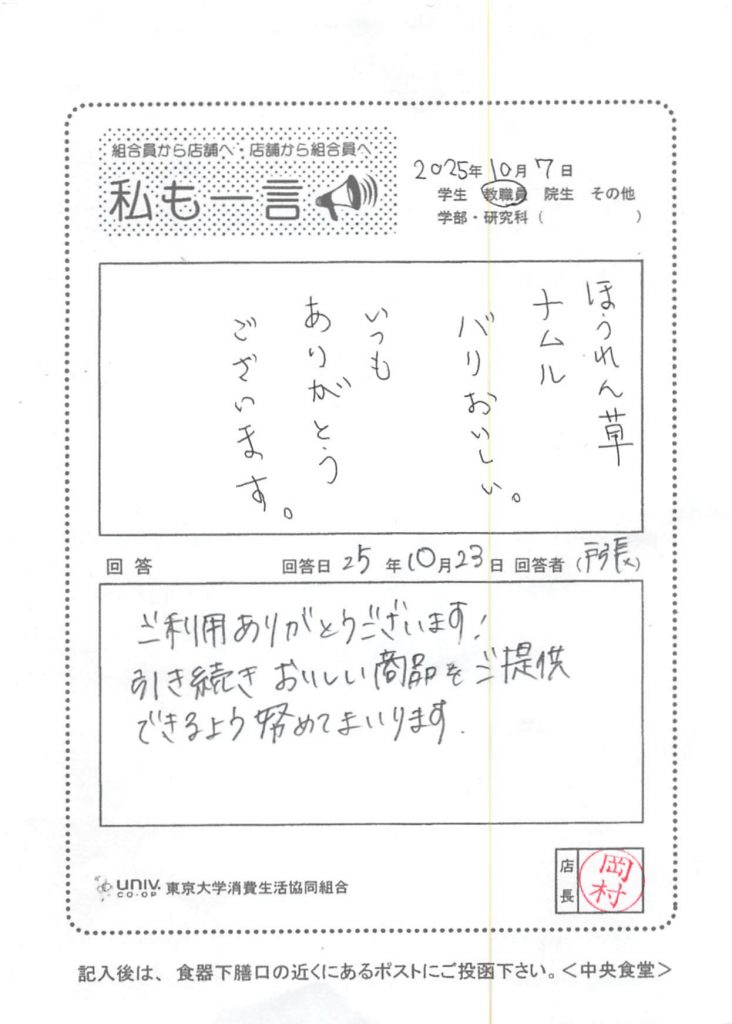 組合員から店舗へ・店舗から組合員へ
私も一言
2025年10月7日
学生 教職員 院生 その他
学部・研究科( )
ほうれん草
ナムル
バリおいしい。
いつも
ありがとう
ございます。
回答 回答日 25年10月23日 回答者(戸張)
ご利用ありがとうございます!
引き続きおいしい商品をご提供
できるよう努めてまいります.
UNIV. CO-OP 東京大学消費生活協同組合
店長 岡村
記入後は、食器下膳口の近くにあるポストにご投函下さい。<中央食堂>